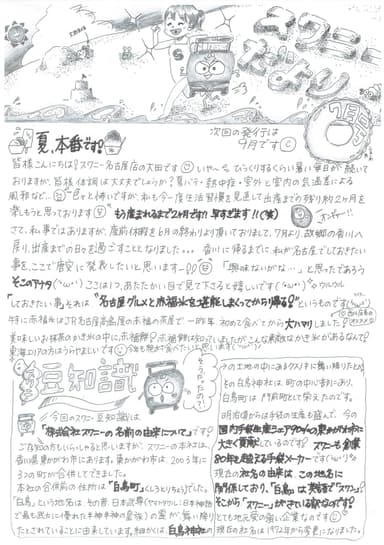 スワニー
だより
7月号
次回の発行は
9月です
夏、本番です!
皆様こんにちは!スワニー名古屋店の大田です いや〜、びっくりするくらい暑い毎日が続いて
おりますが、皆様 体調は大丈夫でしょうか?夏バテ・熱中症・室外と室内の気温差による
風邪など… 色々と怖いですが、私も今一度生活習慣を見直して出産までの残り約2ヶ月を
楽しもうと思っております もう産まれるまで2ヶ月です!!早すぎます!!(笑)
さて、私事ではありますが、産前休暇を6月の終わりより頂いておりまして、7月より故郷の香川へ
戻り、出産までの日々を過ごすこととなりました。。。香川に帰るまでに、私が名古屋でしておきたい
事を、ここで勝手に発表したいと思いまーす!! 「興味ないがな…」と思ったであろう
そこのアナタ ここは1つ、あたたかい目で見て下さると嬉しいです
しておきたい事、それは“名古屋グルメと赤福氷を堪能しまくってから帰る!”というものです
特に赤福氷はJR名古屋高島屋の赤福の茶屋で、一昨年 初めて食べてから大ハマりしました!
美味しいお抹茶のかき氷の中に赤福餅!?赤福餅は知っていましたが、こんな素敵なかき氷があるなんて!
東海エリアの方はうらやましいです
豆知識!
そうだったの!?
今回のスワニー豆知識は、
「株式会社スワニーの名前の由来について」です!
ご存知の方もいらっしゃると思いますが、スワニーの本社は、
香川県東かがわ市にあります。東かがわ市は、2003年に
3つの町が合併してできました。
本社の合併前の住所は「白鳥町。(しろとりちょう)でした。
「白鳥」という地名は、その昔、日本武尊(ヤマトタケル:日本神話
で最も武力に優れた半神半神の皇族)の霊が舞い降り
たとされていることに由来しています。細かくは、白鳥神社
その土地の中にあるクスノキに舞い降りたとか。
その白鳥神社は、町の中心にあり、
白鳥町は門前町として栄えたのです。
明治頃からは手袋の生産も盛んで、今の
国内手袋生産シェア90%の東かがわ市に
大きく貢献しているのです!スワニーも創業
80年を超える手袋メーカーです
現在の社名の由来は、この地名に
関係しており、「白鳥」は英語で「スワン」。
そこから「スワニー」がきている訳なのです!
とても地元愛の強い企業なのです
現在の社名は1972年から変更になりました。